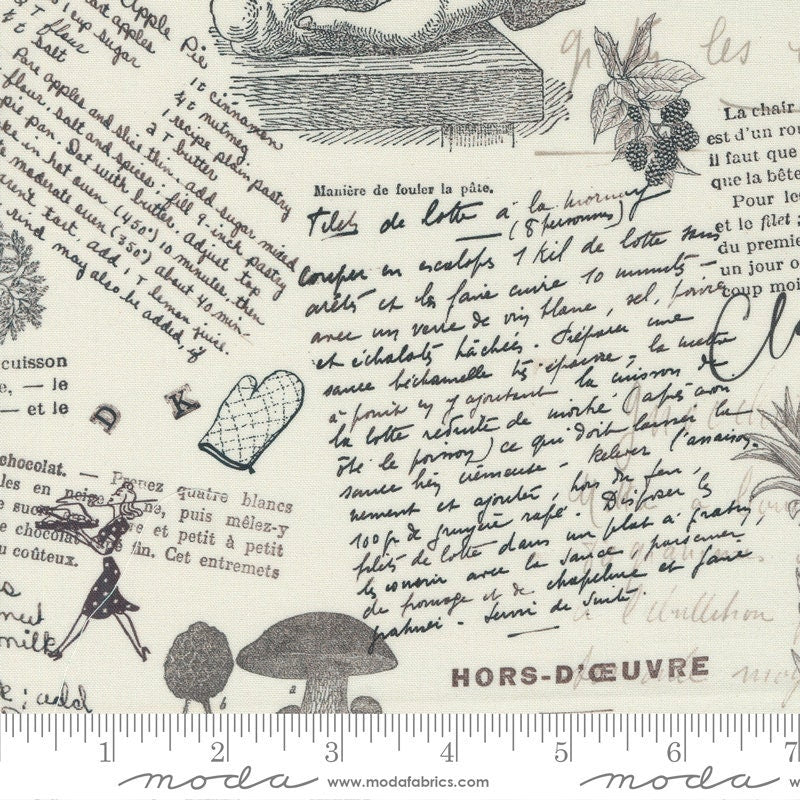 Apple Pie
tart apples
1 cup sugar
T flour
t salt
1 t cinnamon
¼ t nutmeg
2 T butter
1 recipe plain pastry
Pare apples and slice thin, add sugar mixed
flour, salt and spices; fill 9-inch pastry
pie pan. Dot with butter. adjust top
in hot oven (450°) 10 minutes, then
moderate oven (350°) about 40 min-
tart, add 1 T lemon juice.
rind may also be added, if
Manière de fouler la pâte.
Filets de lotte à la mornay
(8 personnes)
couper en escalops 1 kil de lotte sans
arêtes et les faire cuire 10 minutes -
avec un verre de vin blanc, sel, poivre
et échalots hâchées. Préparer une
sauce béchamelle très épaisse, la mettre
à point en y ajoutant la cuisson de
la lotte réduite de moitié (après avoir
ôté le poisson) ce qui doit laisser la
sauce très crémeuse - Relever l'assaison-
nement et ajouter, hors du feu,
100 gr de gruyère rapé. Disposer les
filets de lotte dans un plat à gratin,
les couvrir avec la sauce, parsemer
de fromage et de chapelure et faire
gratiner - Servir de suite.
gr les
La chair
est d'un rou
il faut que
que la bête
Pour les
et le filet ;
du premie
un jour o
coup moi
cuisson
e, — le
— et le
D K
chocolat. — Prenez quatre blancs
les en neige
ne, puis mêlez-y
e chocolat
re et petit à petit
u coûteux.
fin. Cet entremets
nut
milk
; add
a
b
l'ébullition
HORS-D'ŒUVRE
1 2 3 4 5 6 7
moda www.modafabrics.com moda